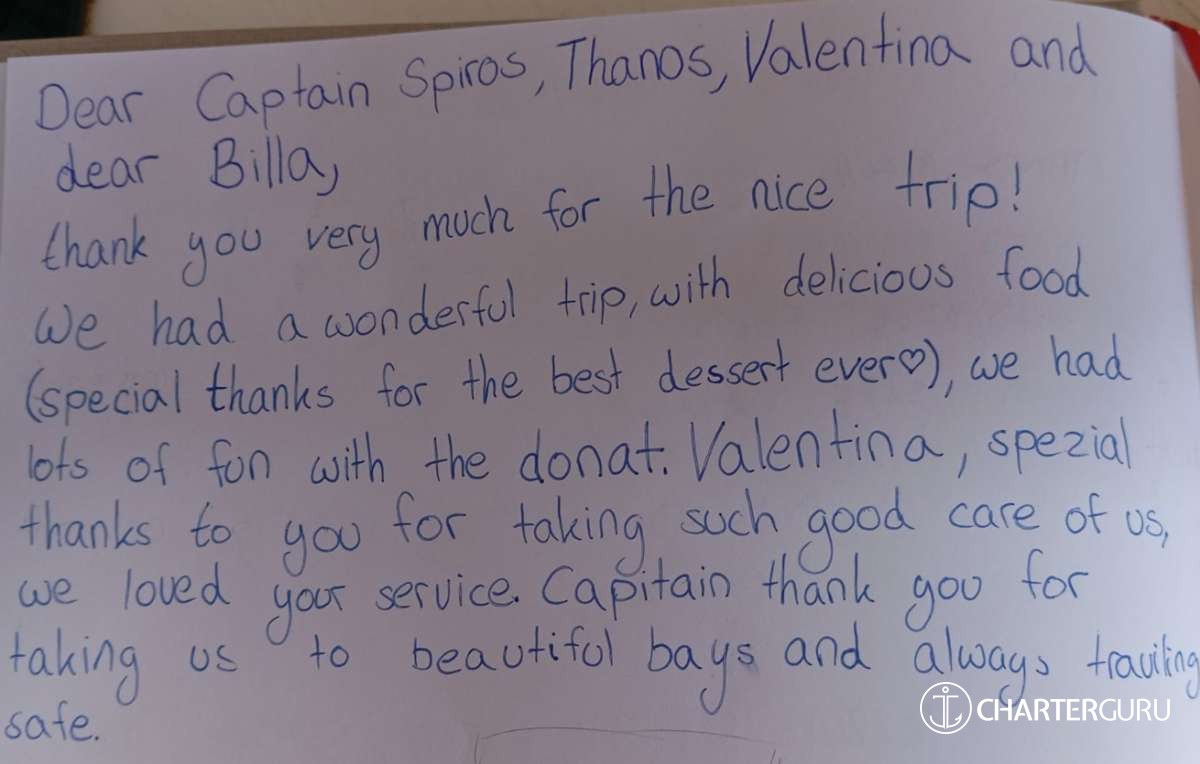 Dear Captain Spiros, Thanos, Valentina and
dear Billa,
thank you very much for the nice trip!
We had a wonderful trip, with delicious food
(special thanks for the best dessert ever♡), we had
lots of fun with the donat. Valentina, spezial
thanks to you for taking such good care of us,
we loved your service. Capitain thank you for
taking us to beautiful bays and always traviling
safe.
CHARTERGURU